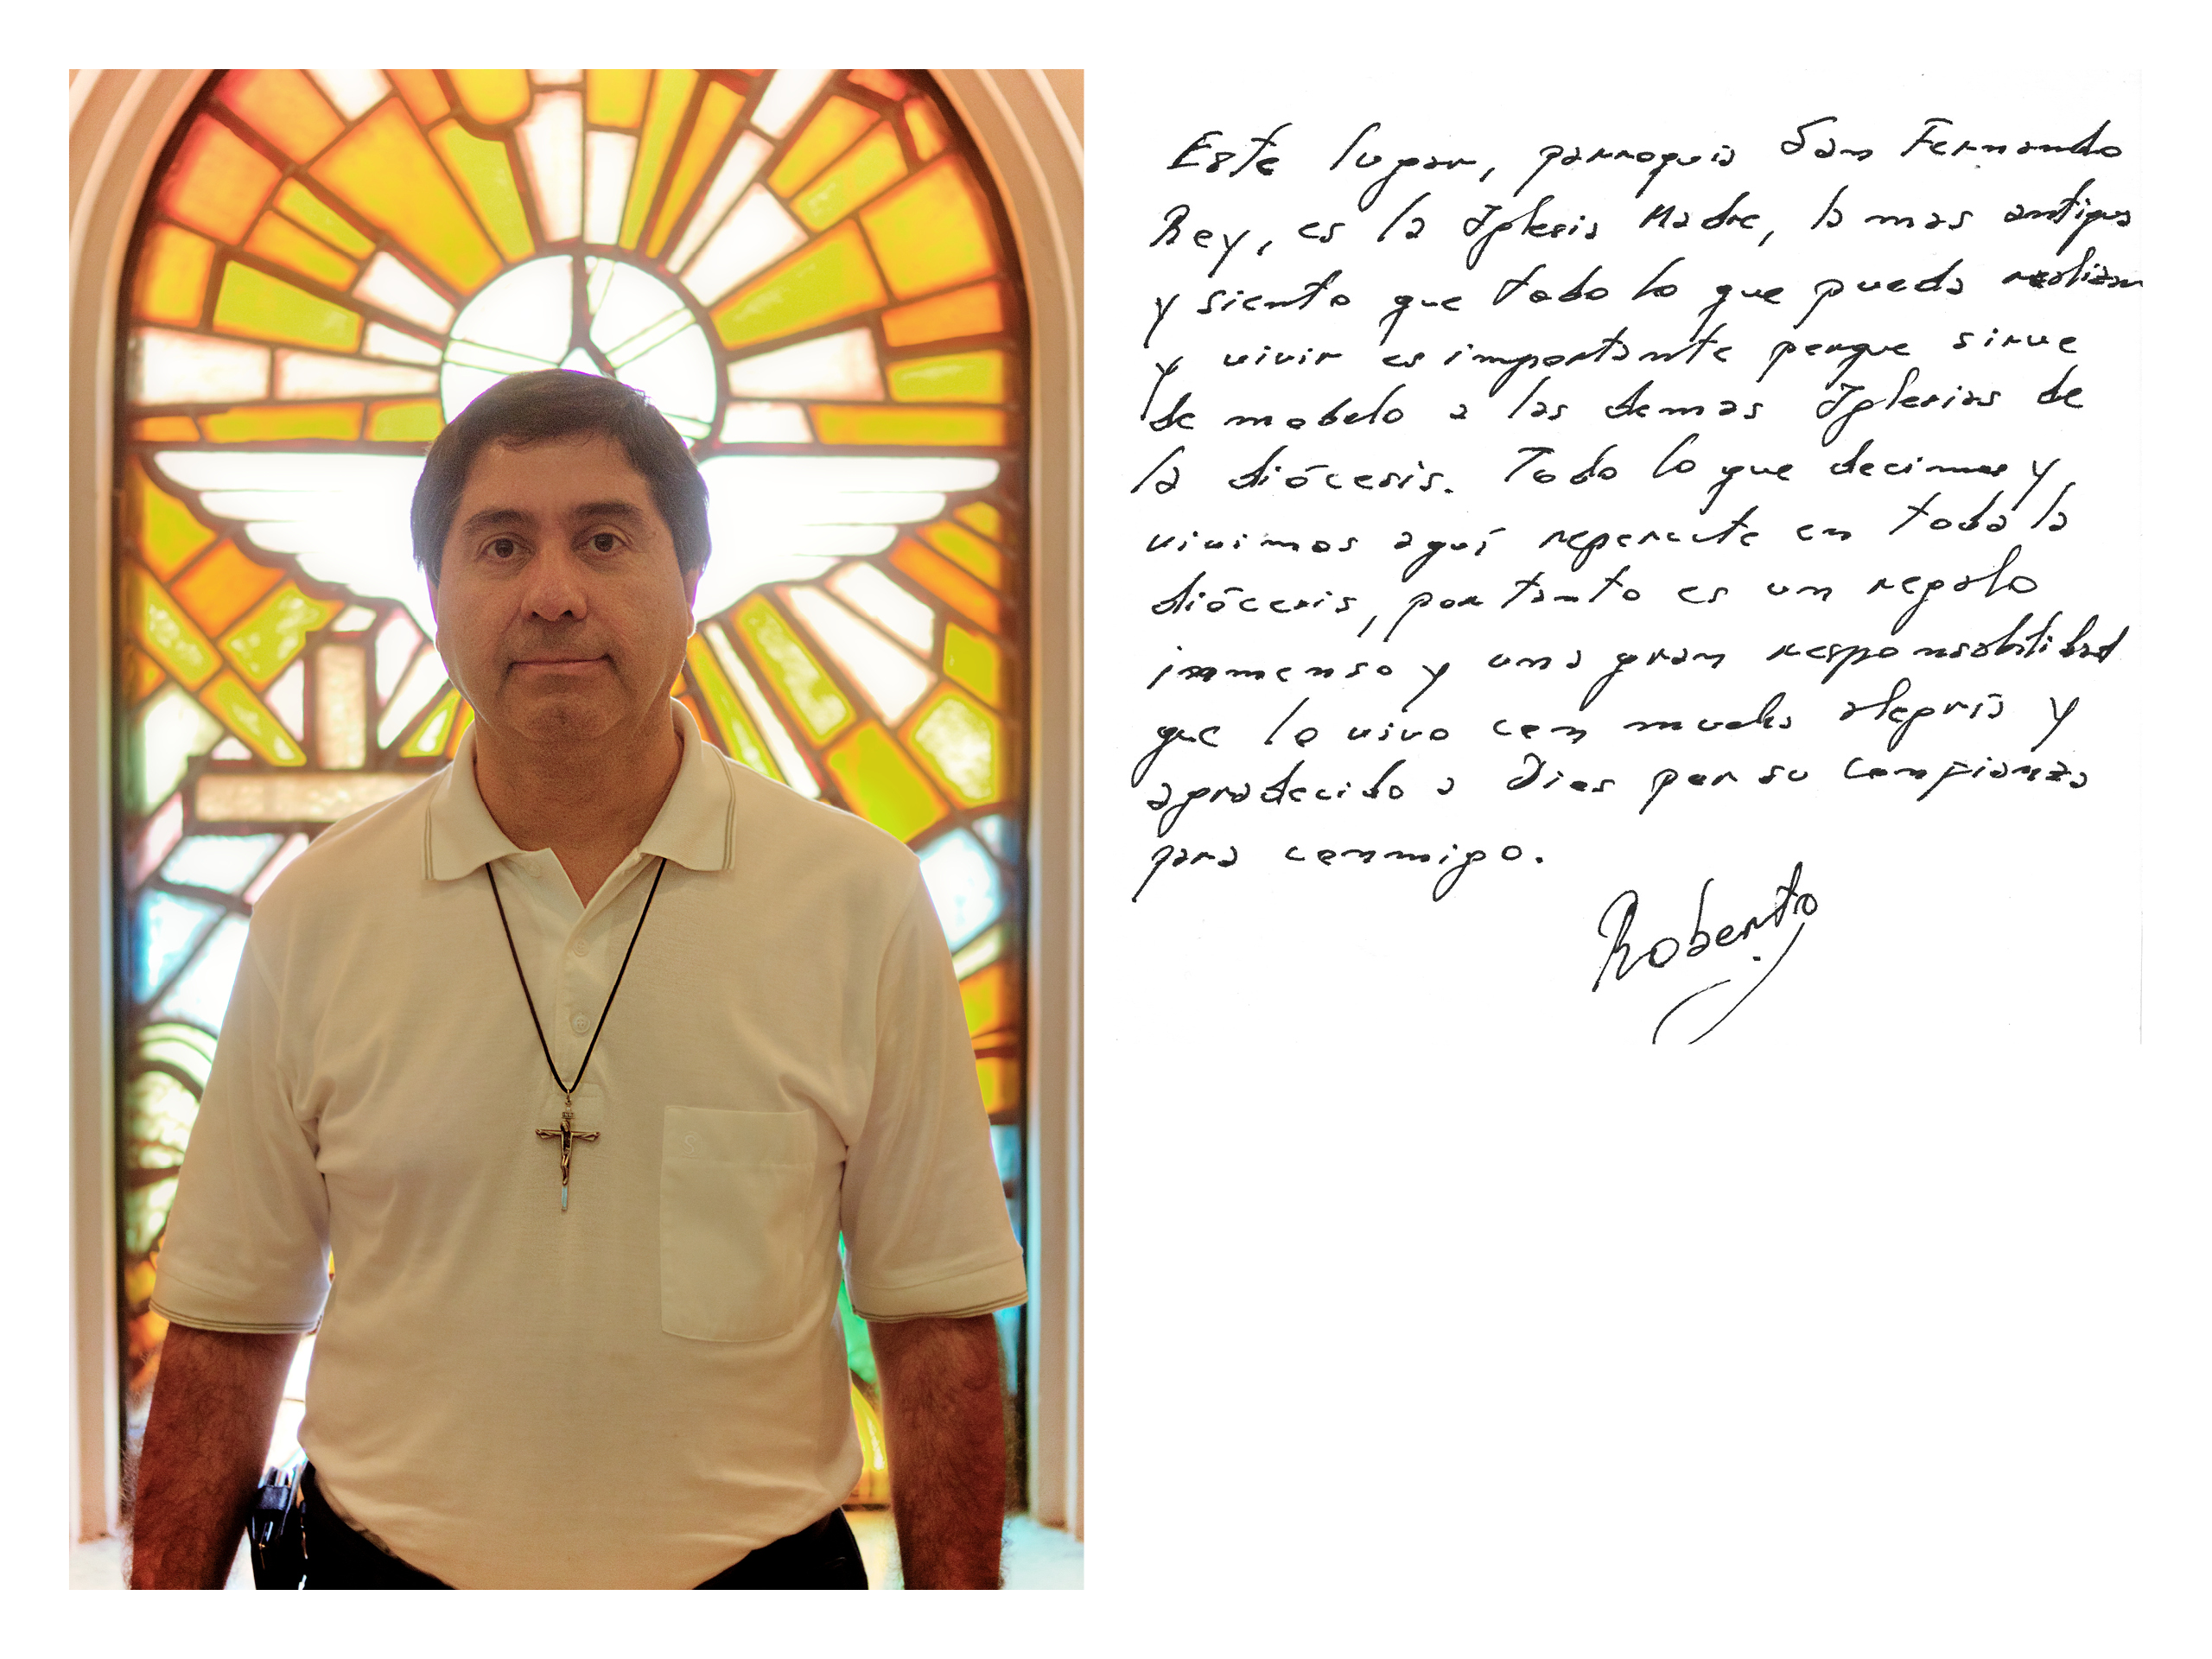 Este lugar, parroquia San Fernando
Rey, es la Iglesia Madre, la mas antigua
y siento que todo lo que pueda realizar
y vivir es importante porque sirve
de modelo a las demas Iglesias de
la diócesis. Todo lo que decimos y
vivimos aquí repercute en toda la
diócesis, por tanto es un regalo
inmenso y una gran responsabilidad
que lo vivo con mucha alegría y
agradecido a Dios por su confianza
para conmigo.
Roberto